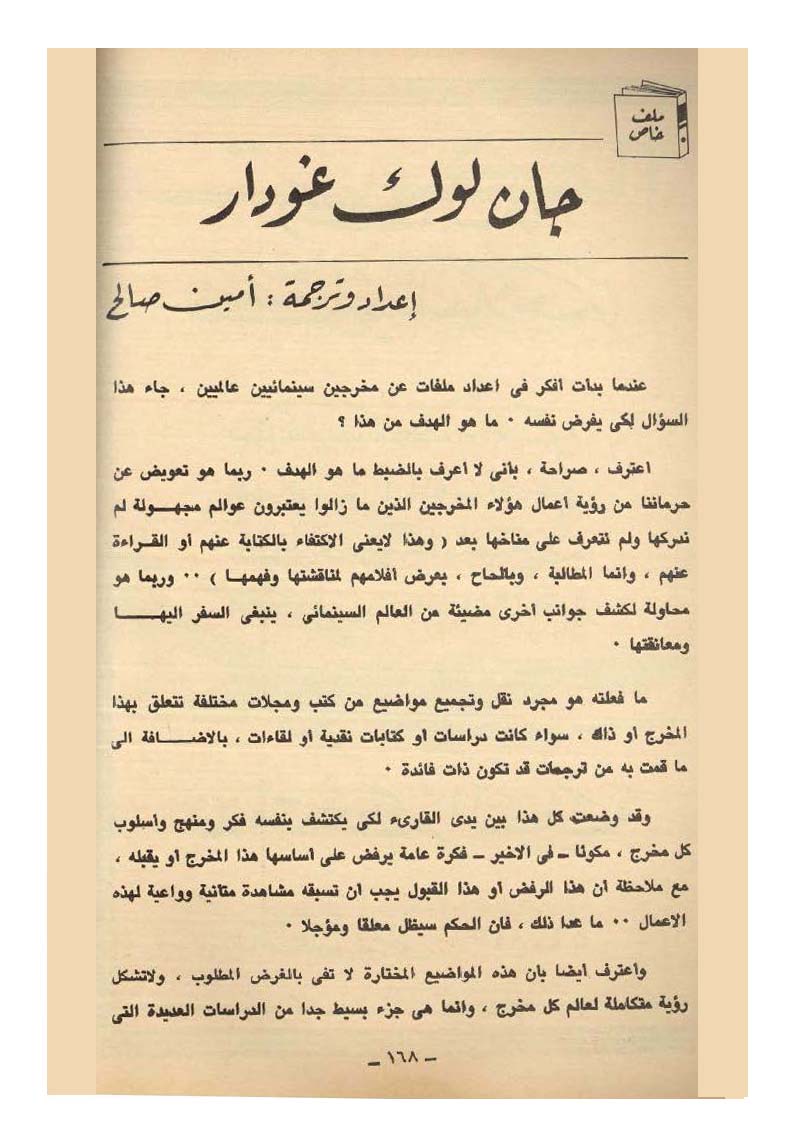 ملف
خاص
جان لوك غودار
إعداد وترجمة : أمين صالح
عندما بدأت أفكر فى اعداد ملفات عن مخرجين سينمائيين عالميين ، جاء هذا
السؤال لكى يفرض نفسه ٠ ما هو الهدف من هذا ؟
اعترف ، صراحة ، بأنى لا أعرف بالضبط ما هو الهدف ٠ ربما هو تعويض عن
حرماننا من رؤية أعمال هؤلاء المخرجين الذين ما زالوا يعتبرون عوالم مجهـــولة لم
ندركها ولم نتعرف على مناخها بعد ( وهذا لايعنى الاكتفاء بالكتابة عنهم أو القــراءة
عنهم ، وانما المطالبة ، وبالحاح ، بعرض أفلامهم لمناقشتها وفهمهــا ) ٠٠ وربما هو
محاولة لكشف جوانب أخرى مضيئة من العالم السينمائى ، ينبغى السفر اليهــــا
ومعانقتها ٠
ما فعلته هو مجرد نقل وتجميع مواضيع من كتب ومجلات مختلفة تتعلق بهذا
المخرج أو ذاك ، سواء كانت دراسات أو كتابات نقدية أو لقاءات ، بالاضـــــافة الى
ما قمت به من ترجمات قد تكون ذات فائدة ٠
وقد وضعت كل هذا بين يدى القارىء لكى يكتشف بنفسه فكر ومنهج وأسلوب
كل مخرج ، مكونا ــ فى الاخير ــ فكرة عامة يرفض على أساسها هذا المخرج أو يقبله ،
مع ملاحظة أن هذا الرفض أو هذا القبول يجب أن تسبقه مشاهدة متأنية وواعية لهذه
الاعمال ٠٠ ما عدا ذلك ، فان الحكم سيظل معلقا ومؤجلا ٠
وأعترف أيضا بأن هذه المواضيع المختارة لا تفى بالغرض المطلوب ، ولاتشكل
رؤية متكاملة لعالم كل مخرج ، وانما هى جزء بسيط جدا من الدراسات العديدة التى
– ١٦٨ –